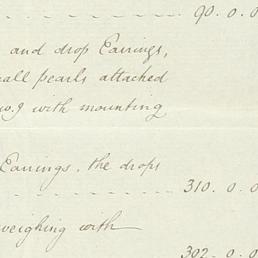 90. 0. 0
and drop Earrings,
all pearls attached
w.g with mounting
Earrings, the drops
310. 0. 0
weighing with
302. 0. 0